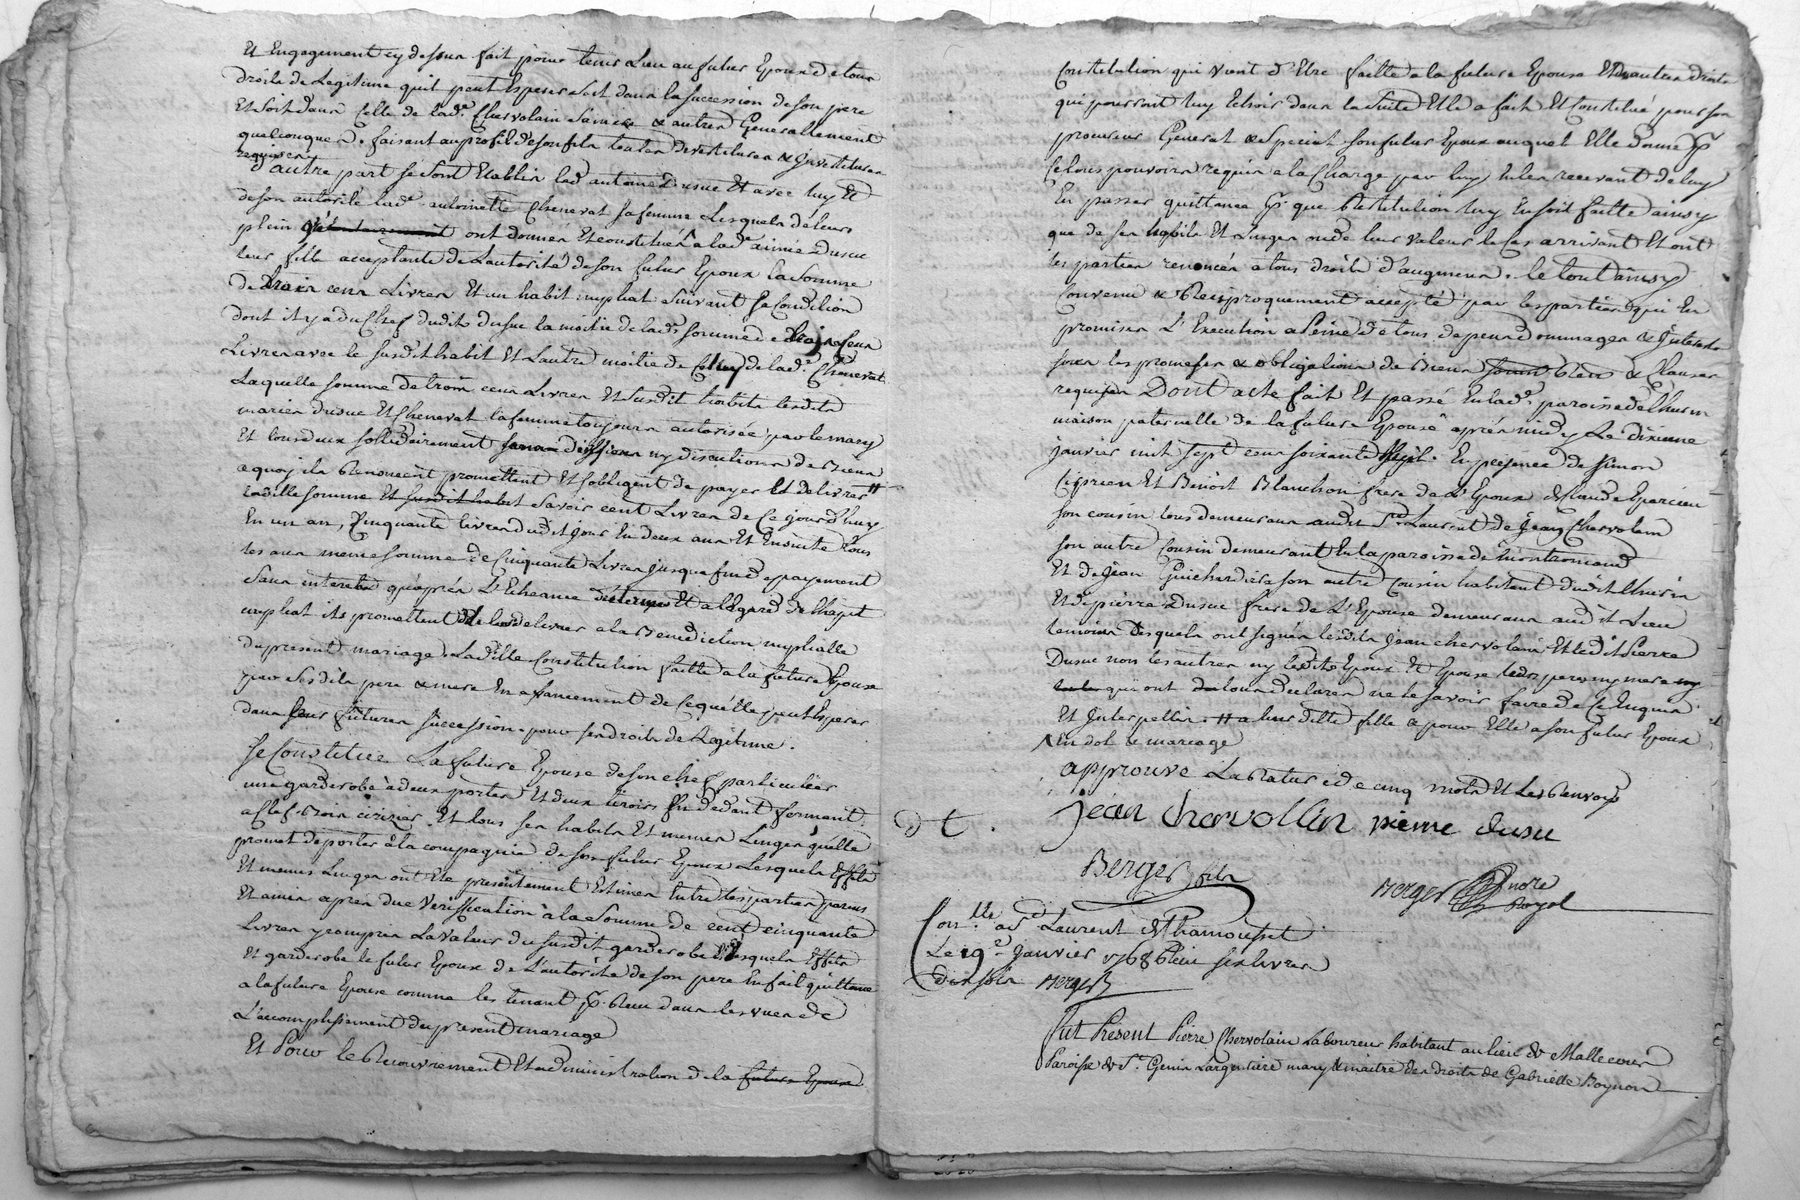 Et Engagement cy dessus fait pour tenir Lieu au futur Epoux de tous
droits de Legitime quil peut Esperer Soit dans la succession de son pere
Et soit dans Celle de lad.e Chervolain Sa mere & autres Generallement
quelconques. faisant au profit de son fils toutes devestitures & Investitures
requises
D'autre part se sont Etablis led antoine Dusuc Et avec luy Et
de son autorité lad.e antoinette Chenevat sa femme Lesquels de leurs
plein ont donnés Et constitués a lad aimée Dusuc
leur fille acceptante de L'autorité de son futur Epoux la Somme
de trois cens Livres Et un habit nuptial Suivant Sa Condition
dont il y a du Chef dudit Dusuc la moitié de lad.e somme de trois cens
Livres avec le susdit habit Et L'autre moitié de Celuy de lad.e Chenevat
Laquelle somme de trois cens Livres Et susdit habit lesdits
mariés Dusuc Et Chenevat la femme toujours autorisée par le mary
Et tous deux sollidairement sans division ny discution de Biens
a quoy ils Renoncent promettent Et s'obligent de payer Et delivrer #
ladille somme Et susdit habit Savoir cent Livres de Ce jourd'huy
En un an, Cinquante livres dudit jour En deux ans Et Ensuite tous
les ans meme somme de Cinquante Livres jusqu'a fin de payement
Sans interets qu'aprés L'Echeance des termes Et a l'Egard de l'habit
nuptial ils promettent de le delivrer a la Benediction nuptialle
du present mariage. Ladille Constitution faitte a la future Epouse
par sesdits pere & mere En avancement de Ce qu'elle peut Esperer
dans leur future succession pour ses droits de Legitime.
Se Constitue La future Epouse de son chef particulier
une garderobe à deux portes Et deux tiroirs En dedant fermant
a Clef Bois cirizier. Et tous ses habits Et menus Linges qu'elle
promet de porter à la compagnie de son futur Epoux Lesquels Effets
Et menus Linges ont Eté presentement Estimés Entre les parties parens
Et amis aprés due Veriffication à la Somme de cent cinquante
Livres y compris La valeur du susdit garderobe Desquels Effets
Et garderobe le futur Epoux de L'autorité de son pere En fait quittance
a la future Epouse comme les tenant p.r Reçu dans les vues de
L'accomplissement du present mariage
Et Pour le Recouvrement Et administration de la future Epouse
Constitution qui vient d'Etre faitte a la future Epouse Et des autres droits
qui pourront luy Echoir dans la Suite Elle a fait Et Constitué pour son
procureur General & Special son futur Epoux auquel Elle donne p.r
Ce tous pouvoirs requis a la Charge par luy En les recevant de luy
En passer quittance p.r que Restitution luy En soit faitte ainsy
que de ses habits Et Linges ou de leur valeur le Cas arrivant Et ont
les parties renoncés a tous droits d'augment. le tout ainsy
Convenu & Reciproquement accepté par les parties qui En
promises L'Execution a Peine de tous depens dommages & Interets
sous les promesses & obligations de Biens & Clauses
requises Dont acte fait Et passé En lad.e paroisse de Thurin
maison paternelle de la future Epouse aprés midy Le dixieme
janvier mil sept cens soixante huit. En presence de Simon
Ciprien Et Benoit Blanchon frere de L'Epoux de Claude Eparcieu
son cousin tous demeurans audit S.t Laurent de Jean Chervolain
son autre Cousin demeurant En la paroisse de Montromand
Et de Jean Guichard son autre Cousin habitant dudit Thurin
Et de pierre Dusuc frere de L'Epouse demeurans audit Lieu
temoins Desquels ont signés lesdits Jean chervolain Et ledit Pierre
Dusuc non les autres ny lesdits Epoux Et Epouse leds peres ny mere ny
qui ont tous declarer ne le savoir faire de Ce Enquis
Et Interpellés. # a leur ditte fille & pour Elle a son futur Epoux
^ En dot & mariage
approuvé La Rature de cinq mots Et Les Renvois
jean chervollin pierre dusu
Dt.
Berger fils
Berger no.re Royal
Con.lle a S.t Laurent de Chamousset
Le 19.e Janvier 1768 Reçu six livres
dix sols Berger
Fut Present Pierre Chervolain Laboureur habitant au lieu de Mallecour
Paroisse de S.t Genis Largentiere mary & maitre des droits de Gabrielle Boynon